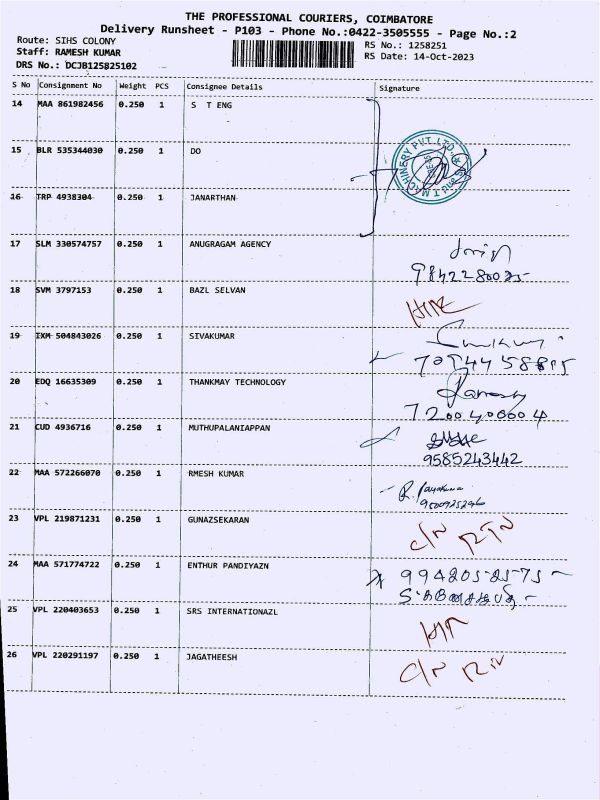 THE PROFESSIONAL COURIERS, COIMBATORE
Delivery Runsheet - P103 - Phone No.:0422-3505555 - Page No.:2
Route: SIHS COLONY
Staff: RAMESH KUMAR
DRS No.: DCJB125825102
RS No.: 1258251
RS Date: 14-Oct-2023
S No Consignment No Weight PCS Consignee Details Signature
14 MAA 861982456 0.250 1 S T ENG
15 BLR 535344030 0.250 1 DO
16 TRP 4938304 0.250 1 JANARTHAN
MACHINERY PVT. LTD.
17 SLM 330574757 0.250 1 ANUGRAGAM AGENCY
18 SVM 3797153 0.250 1 BAZL SELVAN
19 IXM 504843026 0.250 1 SIVAKUMAR
20 EDQ 16635309 0.250 1 THANKMAY TECHNOLOGY
Ramesh
7200400004
21 CUD 4936716 0.250 1 MUTHUPALANIAPPAN
9585243442
22 MAA 572266070 0.250 1 RMESH KUMAR
23 VPL 219871231 0.250 1 GUNAZSEKARAN
C/N RTN
24 MAA 571774722 0.250 1 ENTHUR PANDIYAZN
25 VPL 220403653 0.250 1 SRS INTERNATIONAZL
26 VPL 220291197 0.250 1 JAGATHEESH
C/N RTN